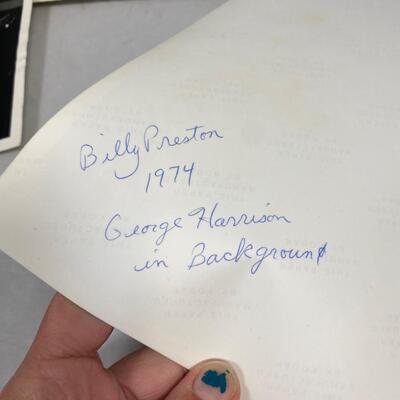 Billy Preston
1974
George Harrison
in Background